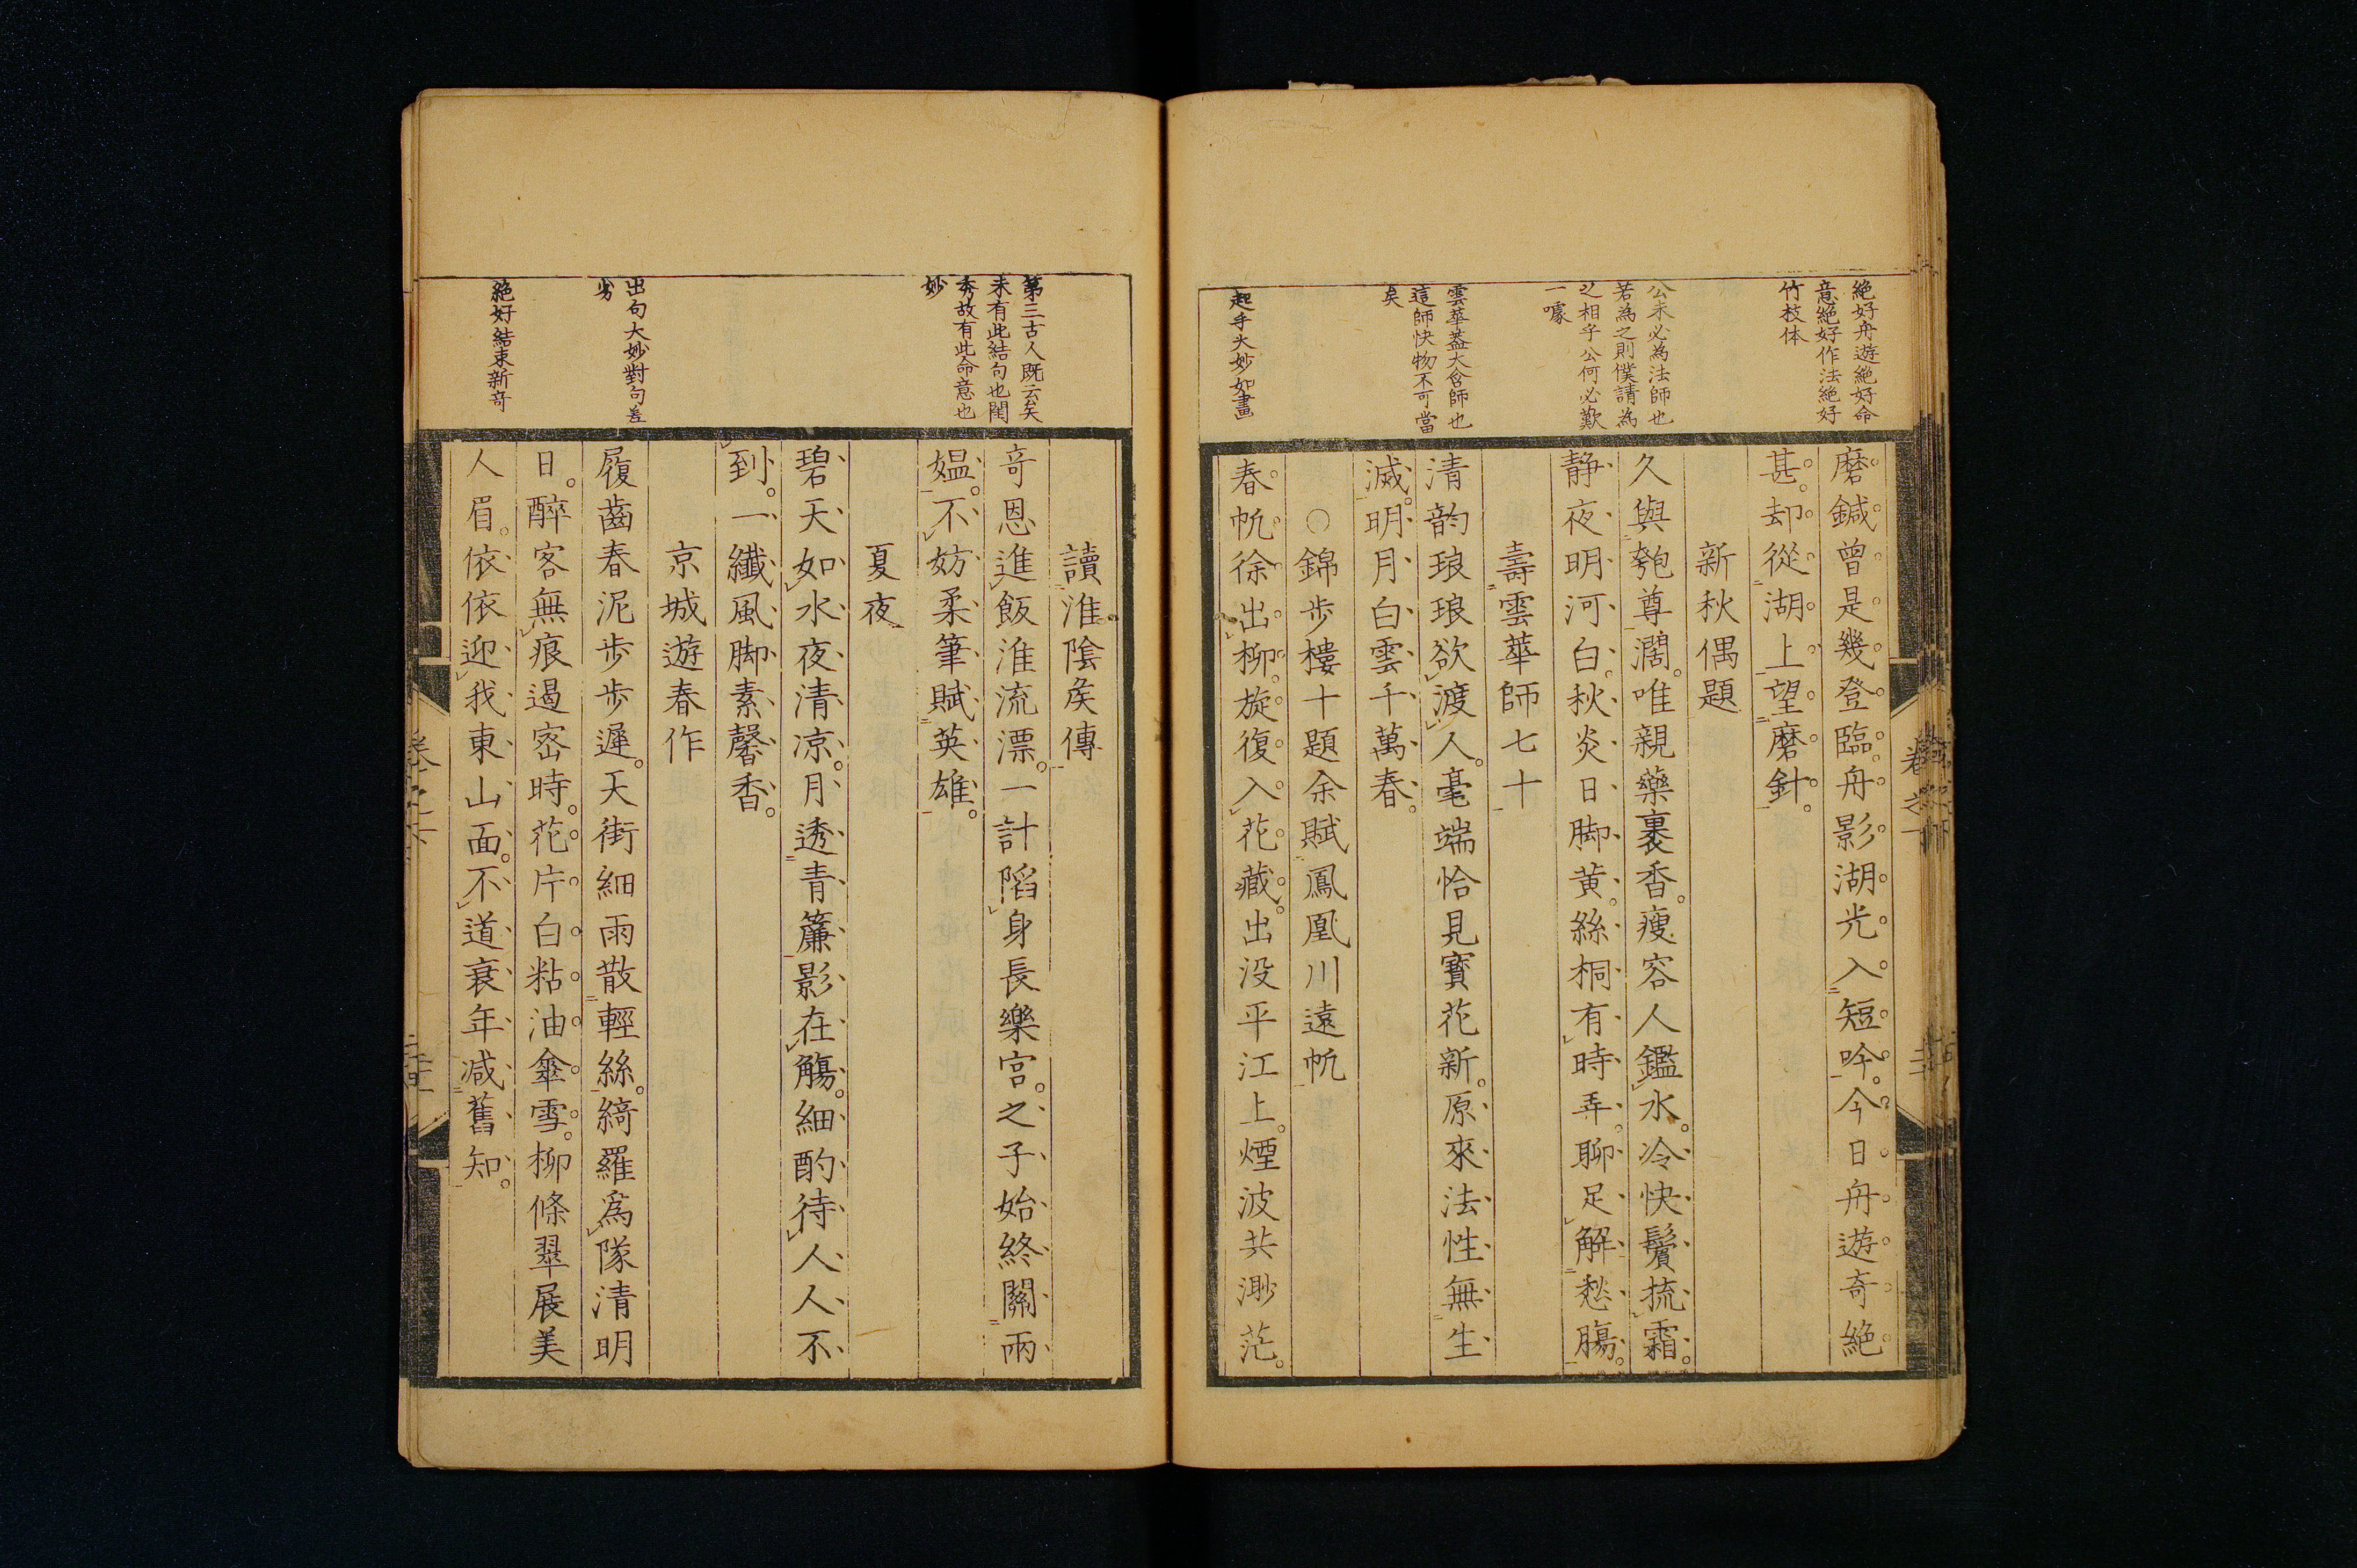 絶好舟遊絶好命
意絶好作法絶好
竹枝体
公未必為法師也
若為之則僕請為
之相乎公何必歎
一噱
雲華蓋大含師也
這師快物不可當
矣
起手大妙如畫
磨鍼曾是幾登臨舟影湖光入短吟今日舟遊奇絶
甚却從湖上望磨針
新秋偶題
久與匏尊濶唯親藥裹香瘦容人鑑水冷快鬢梳霜
静夜明河白秋炎日脚黄絲桐有時弄聊足解愁腸
壽雲華師七十
清韵琅琅欲渡人毫端恰見寳花新原來法性無生
滅明月白雲千萬春
○錦歩樓十題余賦鳳凰川遠帆
春帆徐出柳旋復入花藏出没平江上煙波共渺茫
第三古人既云矣
未有此結句也閨
秀故有此命意也
妙
出句大妙對句差
劣
絶好結束新竒
讀淮陰矦傳
竒恩進飯淮流漂一計陷身長樂宮之子始終關兩
媼不妨柔筆賦英雄
夏夜
碧天如水夜清凉月透青簾影在觴細酌待人人不
到一纖風脚素馨香
京城遊春作
履齒春泥歩歩遲天街細雨散輕絲綺羅爲隊清明
日醉客無痕遏宻時花片白粘油傘雪柳條翠展美
人眉依依迎我東山面不道衰年减舊知